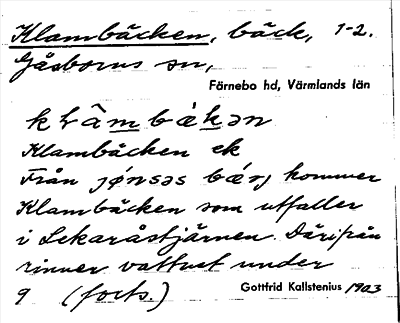 Klambäcken, bäck, 1-2.
Gåsborns sn,
Färnebo hd, Värmlands län
klâmbǽkən
Klambäcken ek
Från jǿnsəs bærj kommer
Klambäcken som utfaller
i Lekaråstjärnen. Därifrån
rinner vattnet under
9 (forts.)
Gottfrid Kallstenius 1903